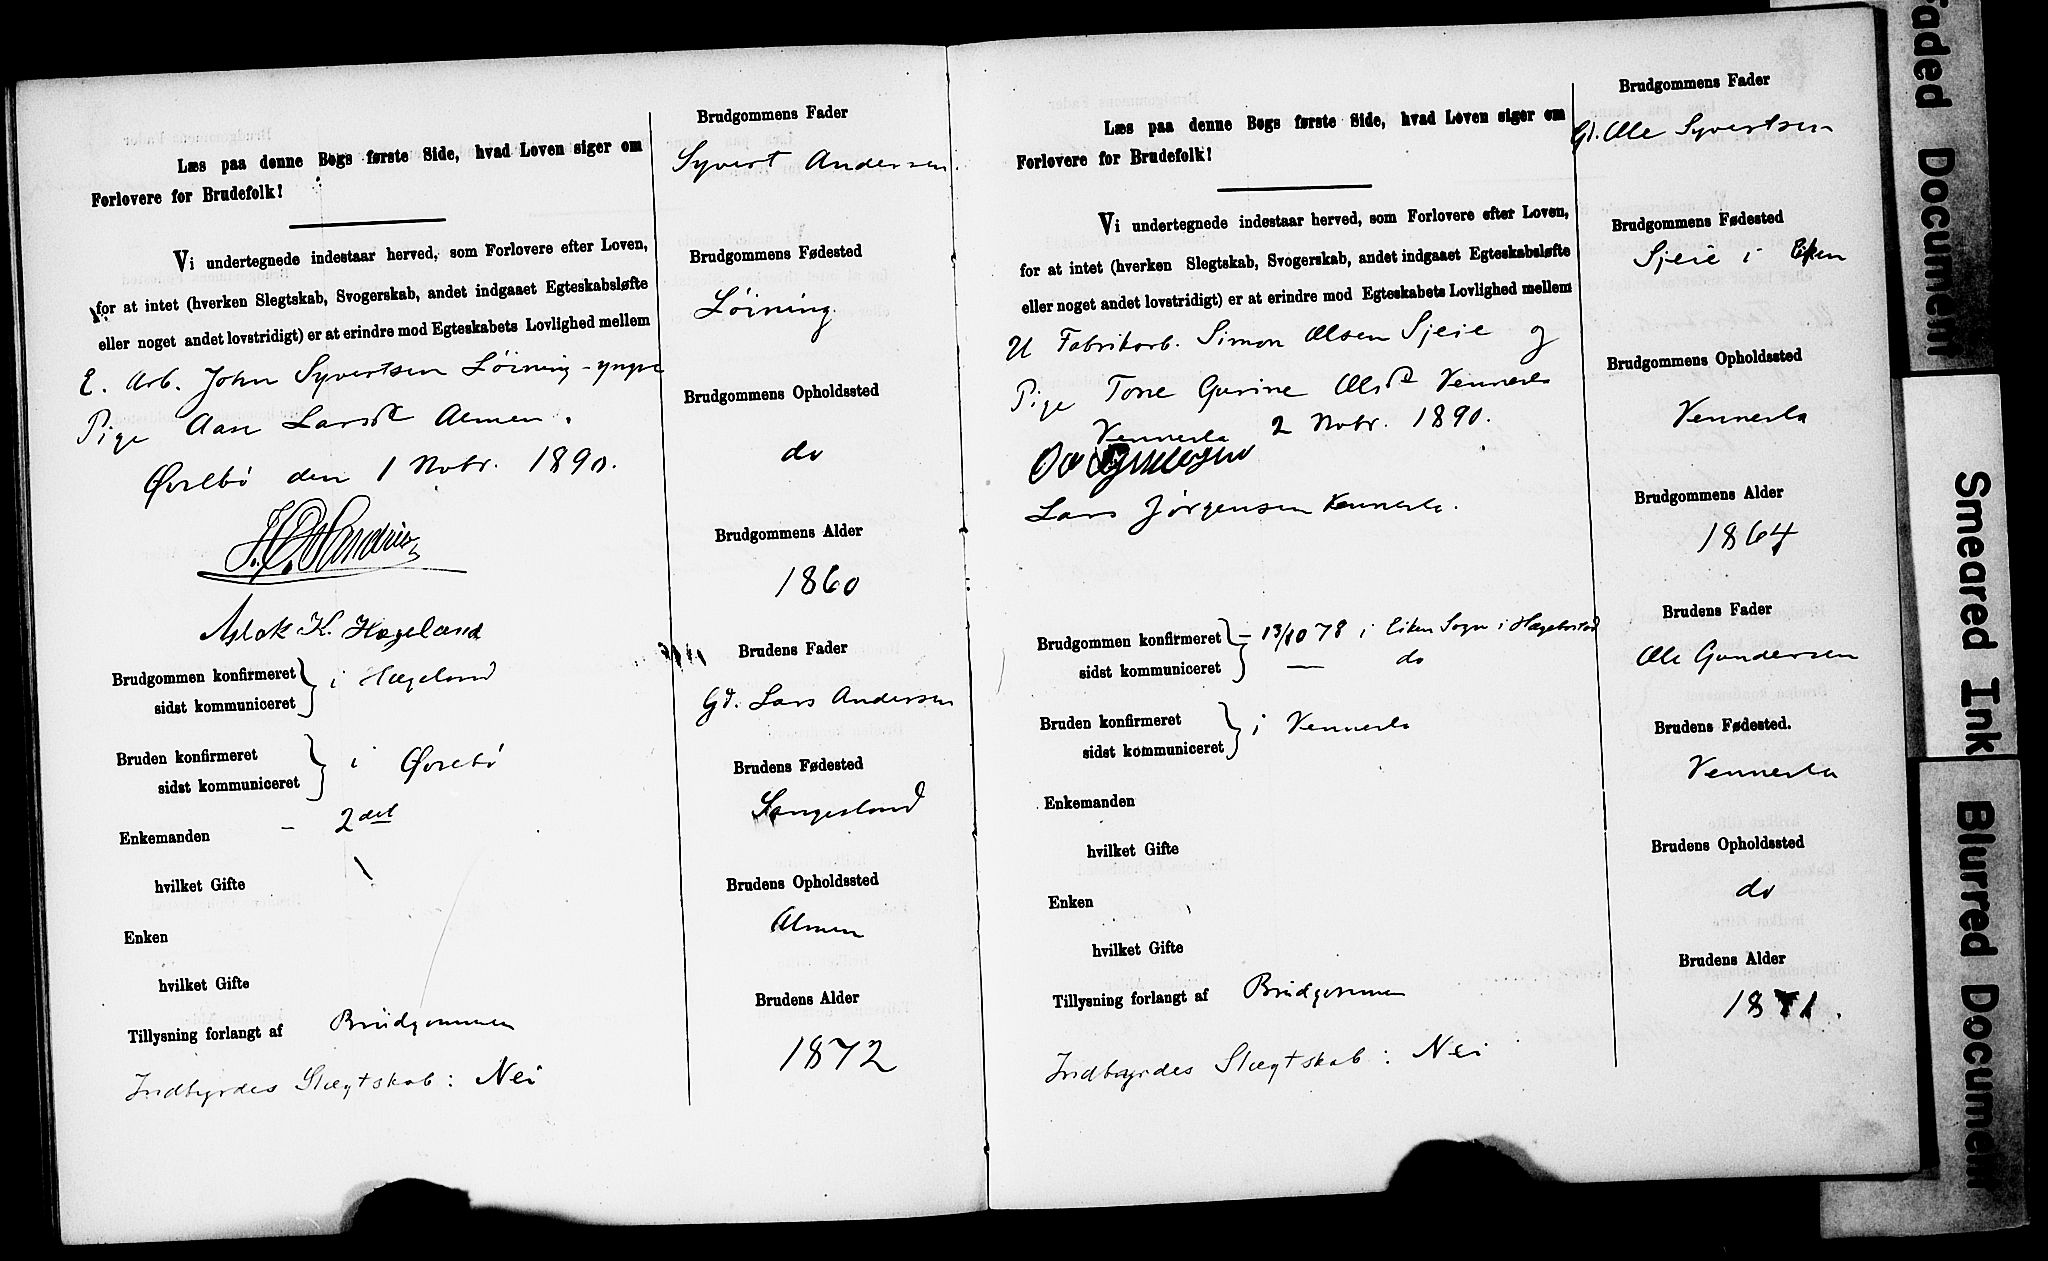 Læs paa denne Bogs første Side, hvad Loven siger om
Forlovere for Brudefolk!
Vi undertegnede indestaar herved, som Forlovere efter Loven,
for at intet (hverken Slegtskab, Svogerskab, andet indgaaet Egteskabsløfte
eller noget andet lovstridigt) er at erindre mod Egteskabets Lovlighed mellem
E. Arb. John Syvertsen Løining-yngre
Pige Aase Larsdt Almen.
Øvrebø den 1 Novbr. 1890.
Aslak K. Hægeland
Brudgommen konfirmeret
sidst kommuniceret
i Hægeland
Bruden konfirmeret
sidst kommuniceret
i Øvrebø
Enkemanden – 2det
hvilket Gifte
Enken
hvilket Gifte
Tillysning forlangt af Brudgommen
Indbyrdes Slægtskab: Nei
Brudgommens Fader
Syvert Andersen.
Brudgommens Fødested
Løining.
Brudgommens Opholdssted
do
Brudgommens Alder
1860
Brudens Fader
Gd. Lars Andersen
Brudens Fødested
Brudens Opholdssted
Almen
Brudens Alder
1872
Læs paa denne Bogs første Side, hvad Loven siger om
Forlovere for Brudefolk!
Vi undertegnede indestaar herved, som Forlovere efter Loven,
for at intet (hverken Slegtskab, Svogerskab, andet indgaaet Egteskabsløfte
eller noget andet lovstridigt) er at erindre mod Egteskabets Lovlighed mellem
U Fabrikarb. Simon Olsen Sjeie og
Pige Tone Gurine Olsdt Vennesla
Vennesla 2 Novbr. 1890.
Lars Jørgensen Vennesla.
Brudgommen konfirmeret
sidst kommuniceret
– 13/10 78 i Eiken Sogn i Hægebostad
— do
Bruden konfirmeret
sidst kommuniceret
i Vennesla
Enkemanden
hvilket Gifte
Enken
hvilket Gifte
Tillysning forlangt af Brudgommen
Indbyrdes Slægtskab: Nei
Brudgommens Fader
Gd. Ole Syvertsen
Brudgommens Fødested
Sjeie i Eiken
Brudgommens Opholdssted
Vennesla
Brudgommens Alder
1864
Brudens Fader
Ole Gundersen
Brudens Fødested.
Vennesla
Brudens Opholdssted
do
Brudens Alder
1871.
Faded Document
Smeared Ink
Blurred Document